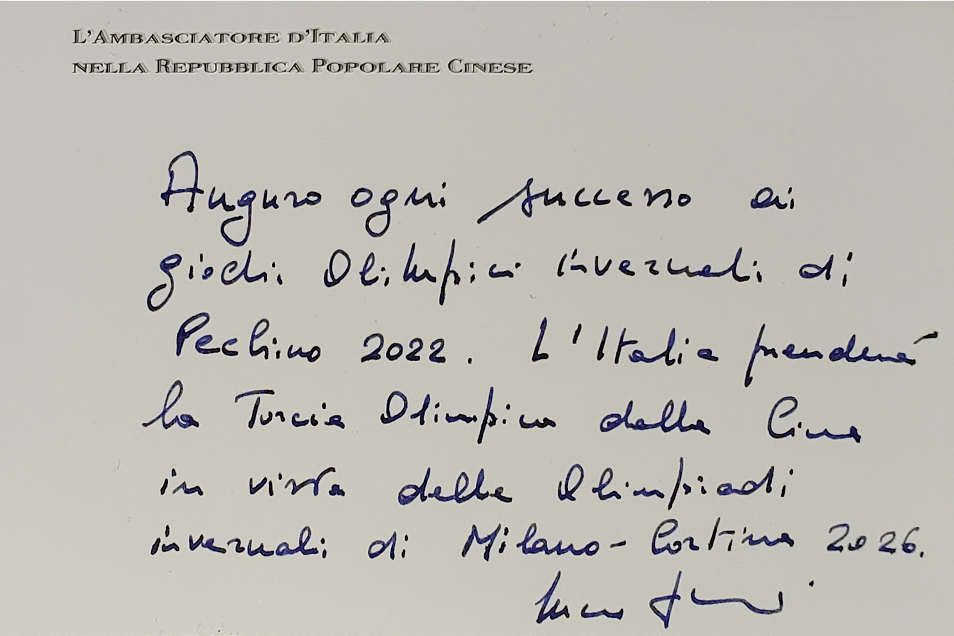 L'AMBASCIATORE D'ITALIA
NELLA REPUBBLICA POPOLARE CINESE
Auguro ogni successo ai
giochi Olimpici invernali di
Pechino 2022. L'Italia prenderà
la Torcia Olimpica dalla Cina
in vista delle Olimpiadi
invernali di Milano-Cortina 2026.
Luca